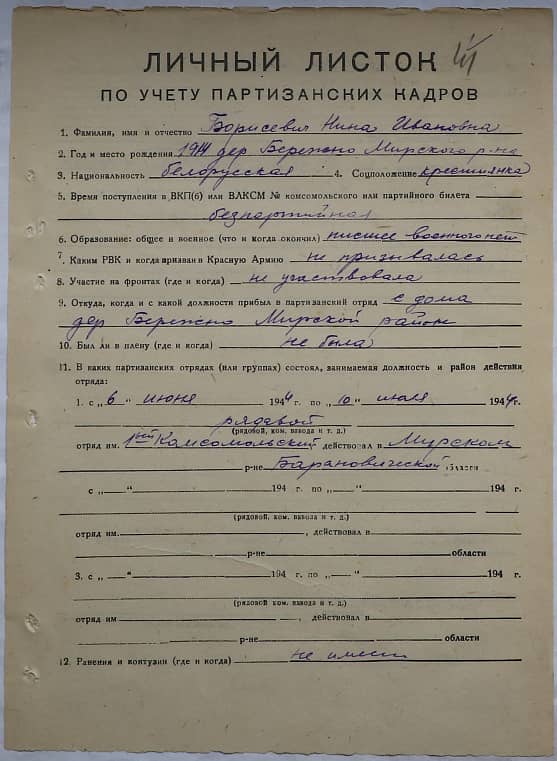 ЛИЧНЫЙ ЛИСТОК
ПО УЧЕТУ ПАРТИЗАНСКИХ КАДРОВ
1. Фамилия, имя и отчество Борисевич Нина Ивановна
2. Год и место рождения 1914 дер Бережно Мирского р-на
3. Национальность белорусская 4. Соцположение крестиянка
5. Время поступления в ВКП(б) или ВЛКСМ № комсомольского или партийного билета
безпартийная
6. Образование: общее и военное (что и когда окончил) нисшее военного нет
7. Каким РВК и когда призван в Красную Армию не призывалась
8. Участие на фронтах (где и когда) не участвовала
9. Откуда, когда и с какой должности прибыл в партизанский отряд с дома
дер Бережно Мирской район
10. Был ли в плену (где и когда) не была
11. В каких партизанских отрядах (или группах) состоял, занимаемая должность и район действия
отряда:
1. с „6“ июня 1944 г. по „10“ июля 1944 г.
рядовой
(рядовой, ком. взвода и т. д.)
отряд им. 1ный Комсомольский действовал в Мирском
р-не Барановической области
с „ “ 194 г. по „ “ 194 г.
(рядовой, ком. взвода и т. д.)
отряд им. , действовал в
р-не области
3. с „ “ 194 г. по „ “ 194 г.
(рядовой, ком. взвода и т. д.)
отряд им , действовал в
р-не области
12. Ранения и контузии (где и когда) не имеет